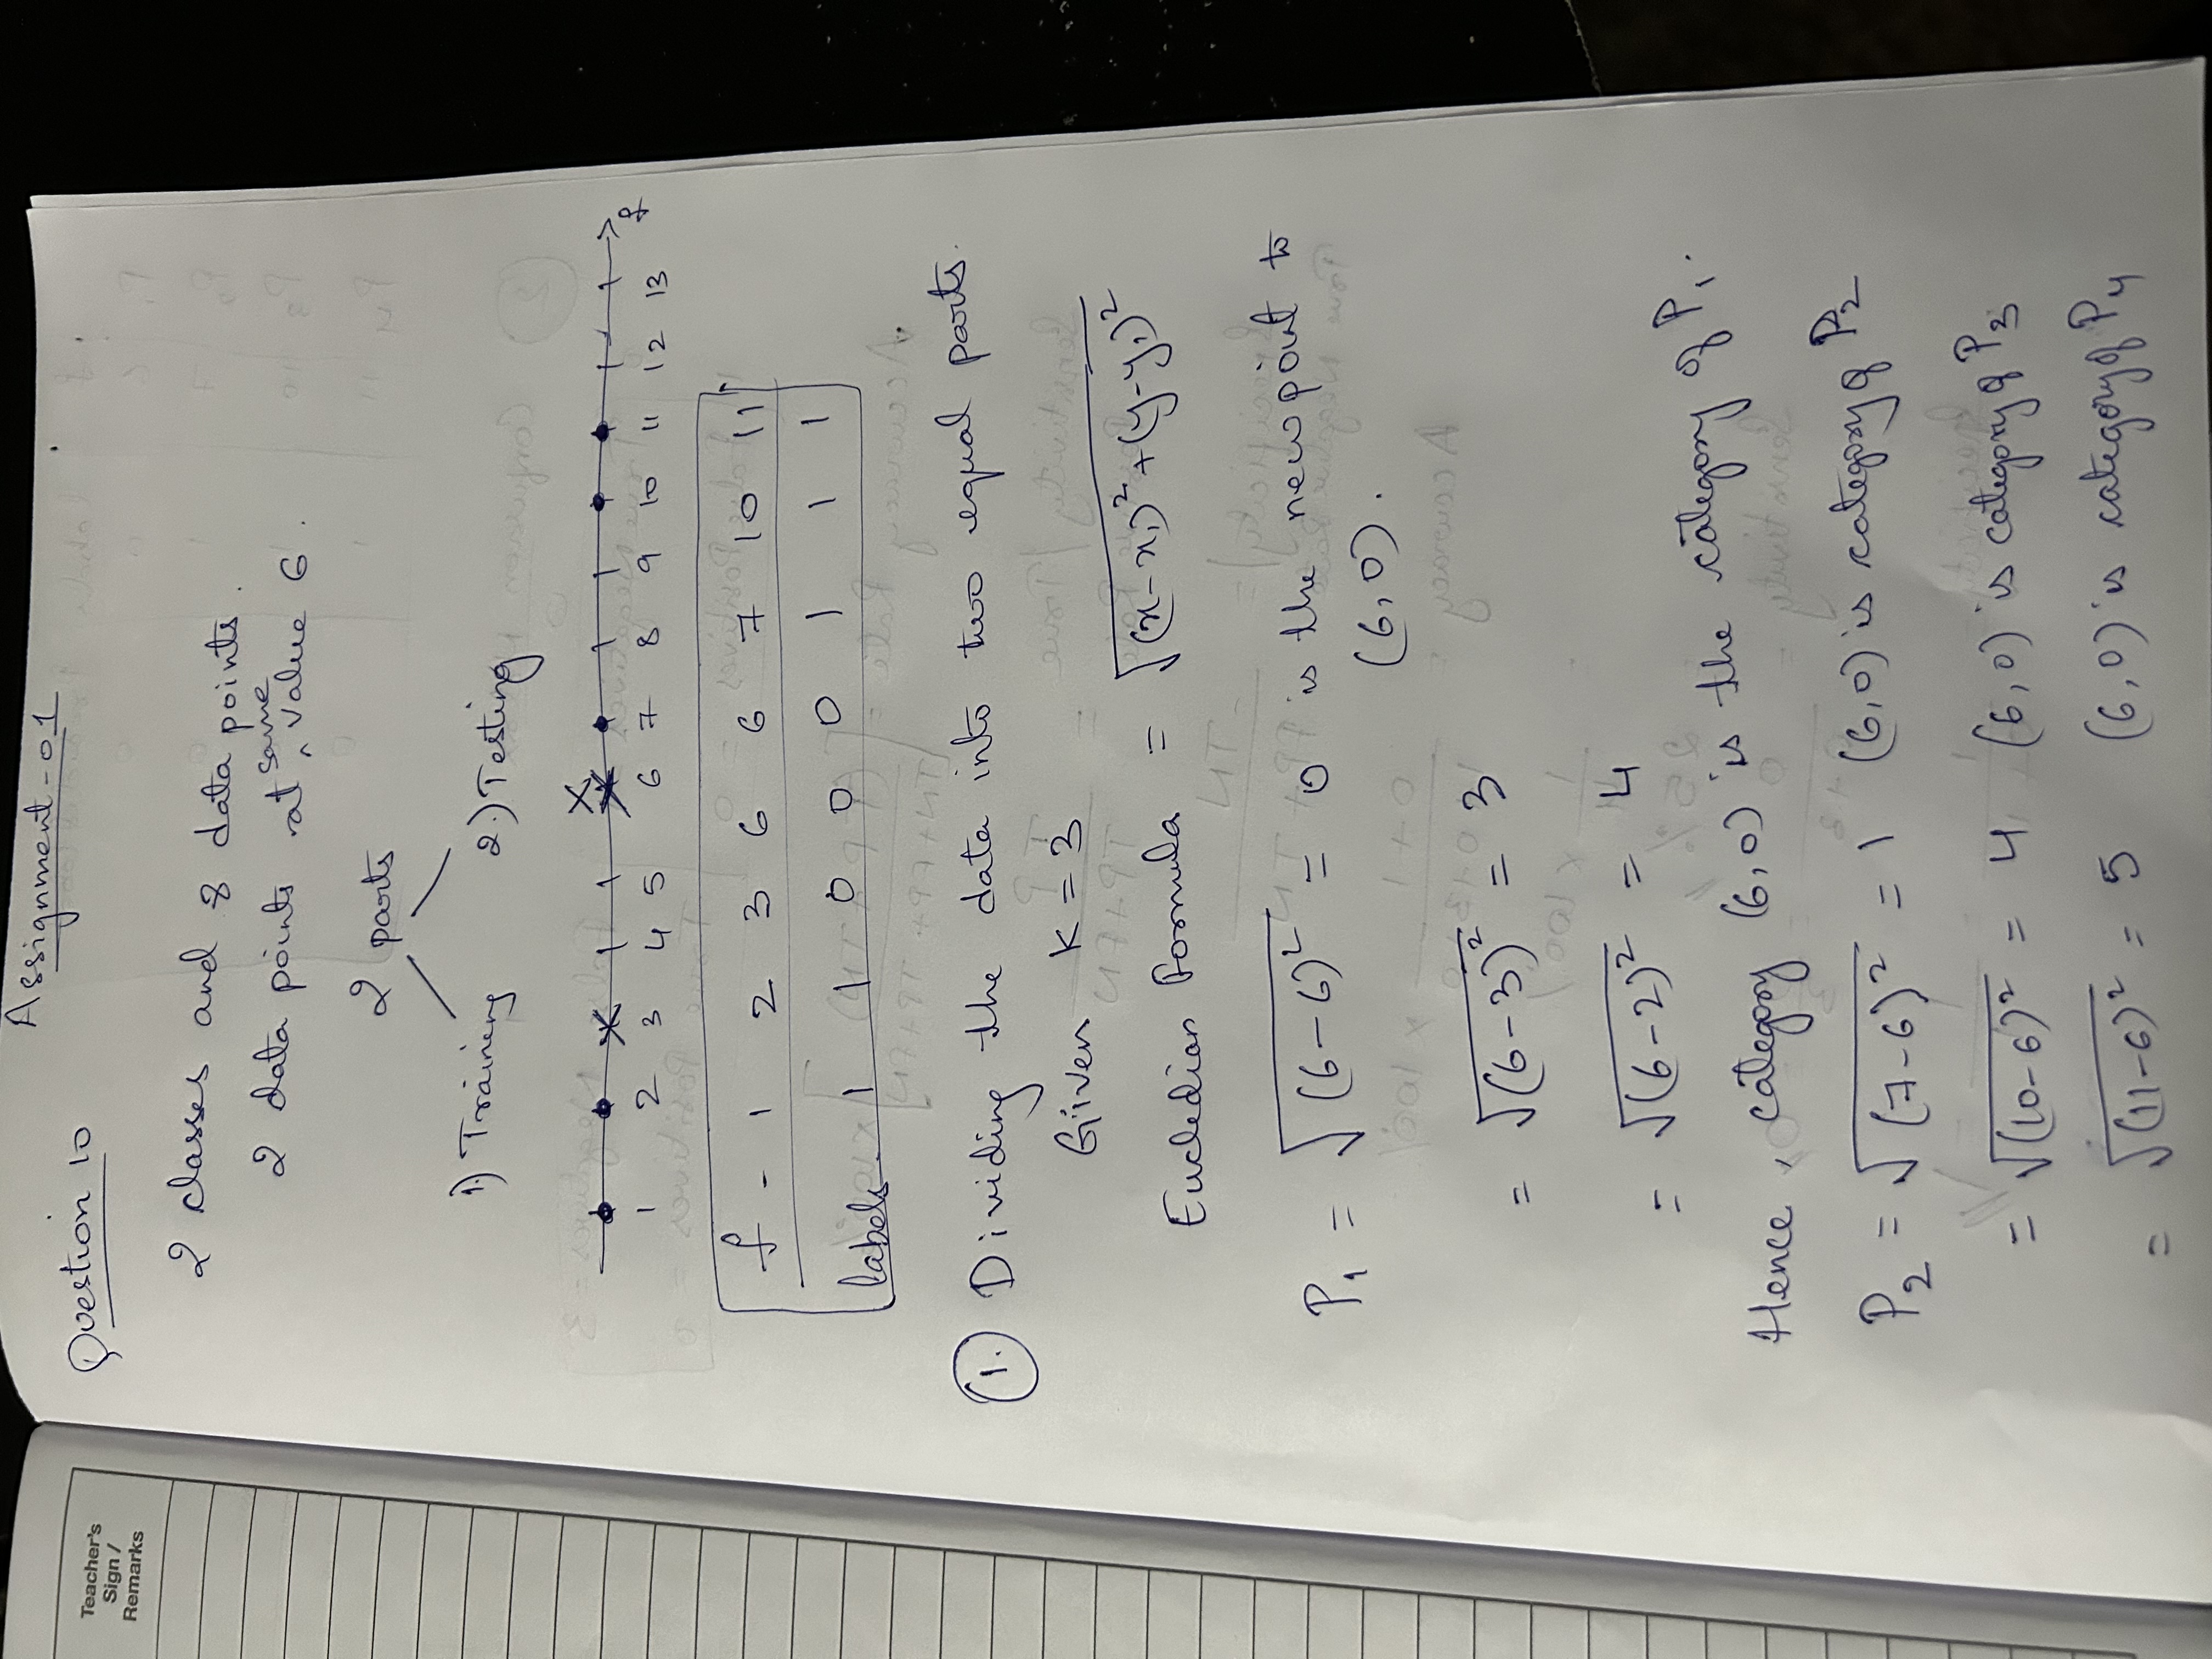 Teacher's
Sign /
Remarks
Assignment-01
Question 10
2 classes and 8 data points.
2 data points at same value 6.
2 parts
1.) Training 2.) Testing
1 2 3 4 5 6 7 8 9 10 11 12 13 f
f - 1 2 3 6 6 7 10 11
labels - 1 1 0 0 0 1 1 1
1. Dividing the data into two equal parts.
Given K = 3
Eucledian Formula = √(x-x₁)²+(y-y₁)²
P₁ = √(6-6)² = 0 is the new point to
(6,0).
= √(6-3)² = 3
= √(6-2)² = 4
Hence, category (6,0) is the category of P₁.
P₂ = √(7-6)² = 1 (6,0) is category of P₂
= √(10-6)² = 4 (6,0) is category of P₃
= √(11-6)² = 5 (6,0) is category of P₄